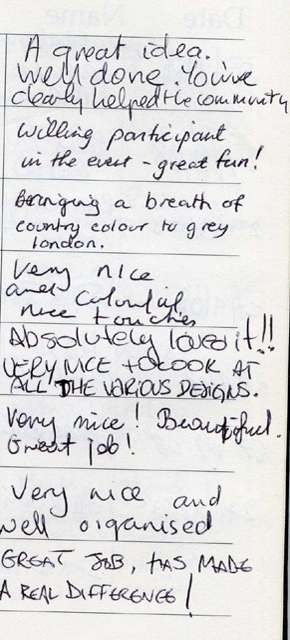 A great idea.
Well done. You've
clearly helped the community
Willing participant
in the event - great fun!
Bringing a breath of
country colour to grey
london.
Very nice
and colourful
nice touches
Absolutely loves it!!
VERY NICE TO LOOK AT
ALL THE VARIOUS DESIGNS.
Very nice! Beautiful.
Great job!
Very nice and
well organised
GREAT JOB, HAS MADE
A REAL DIFFERENCE!